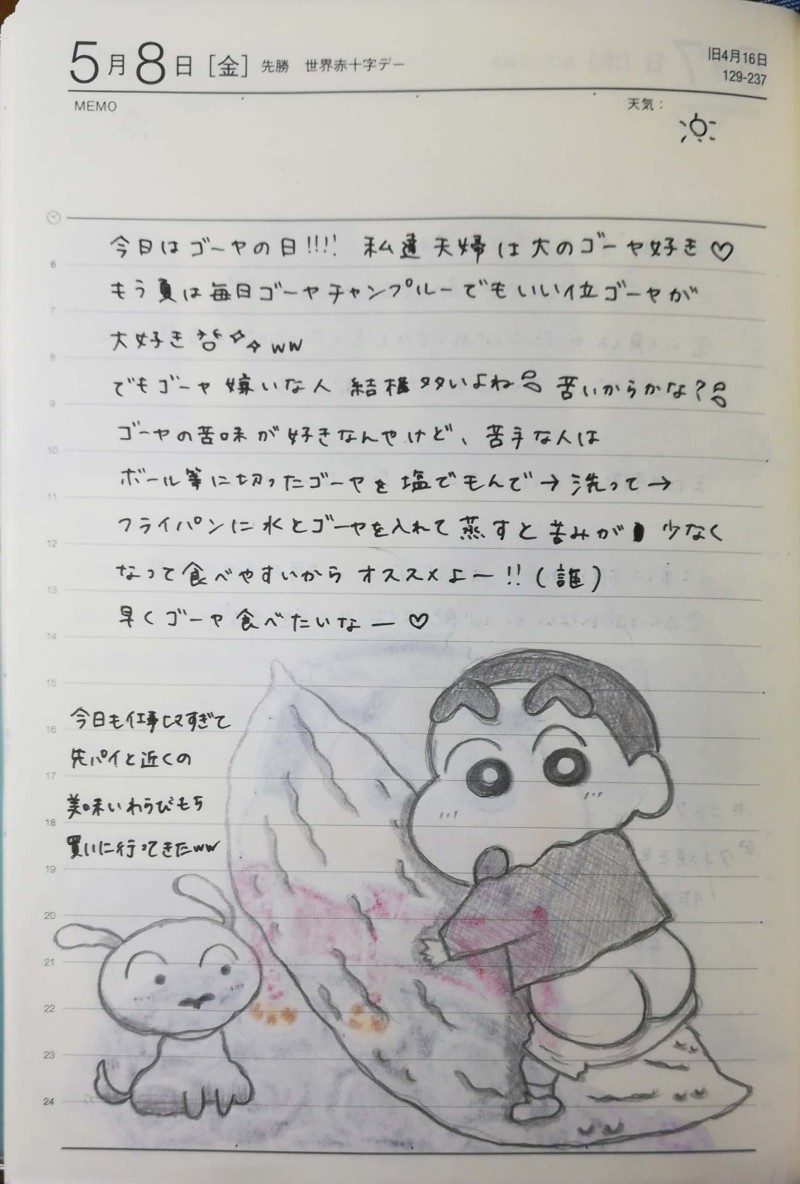 5月8日［金］ 先勝 世界赤十字デー
旧4月16日
129-237
MEMO
天気：
今日はゴーヤの日!!!! 私達夫婦は大のゴーヤ好き♡
もう夏は毎日ゴーヤチャンプルーでもいい位ゴーヤが
大好き ww
でもゴーヤ嫌いな人 結構多いよね 苦いからかな?
ゴーヤの苦味が好きなんやけど、苦手な人は
ボール等に切ったゴーヤを塩でもんで→洗って→
フライパンに水とゴーヤを入れて蒸すと苦みが 少なく
なって食べやすいから オススメよー!!(誰)
早くゴーヤ食べたいなー♡
6
7
8
9
10
11
12
13
14
15
16
17
18
19
20
21
22
23
24
今日も仕事ヒマすぎて
先パイと近くの
美味いわらびもち
買いに行ってきたww